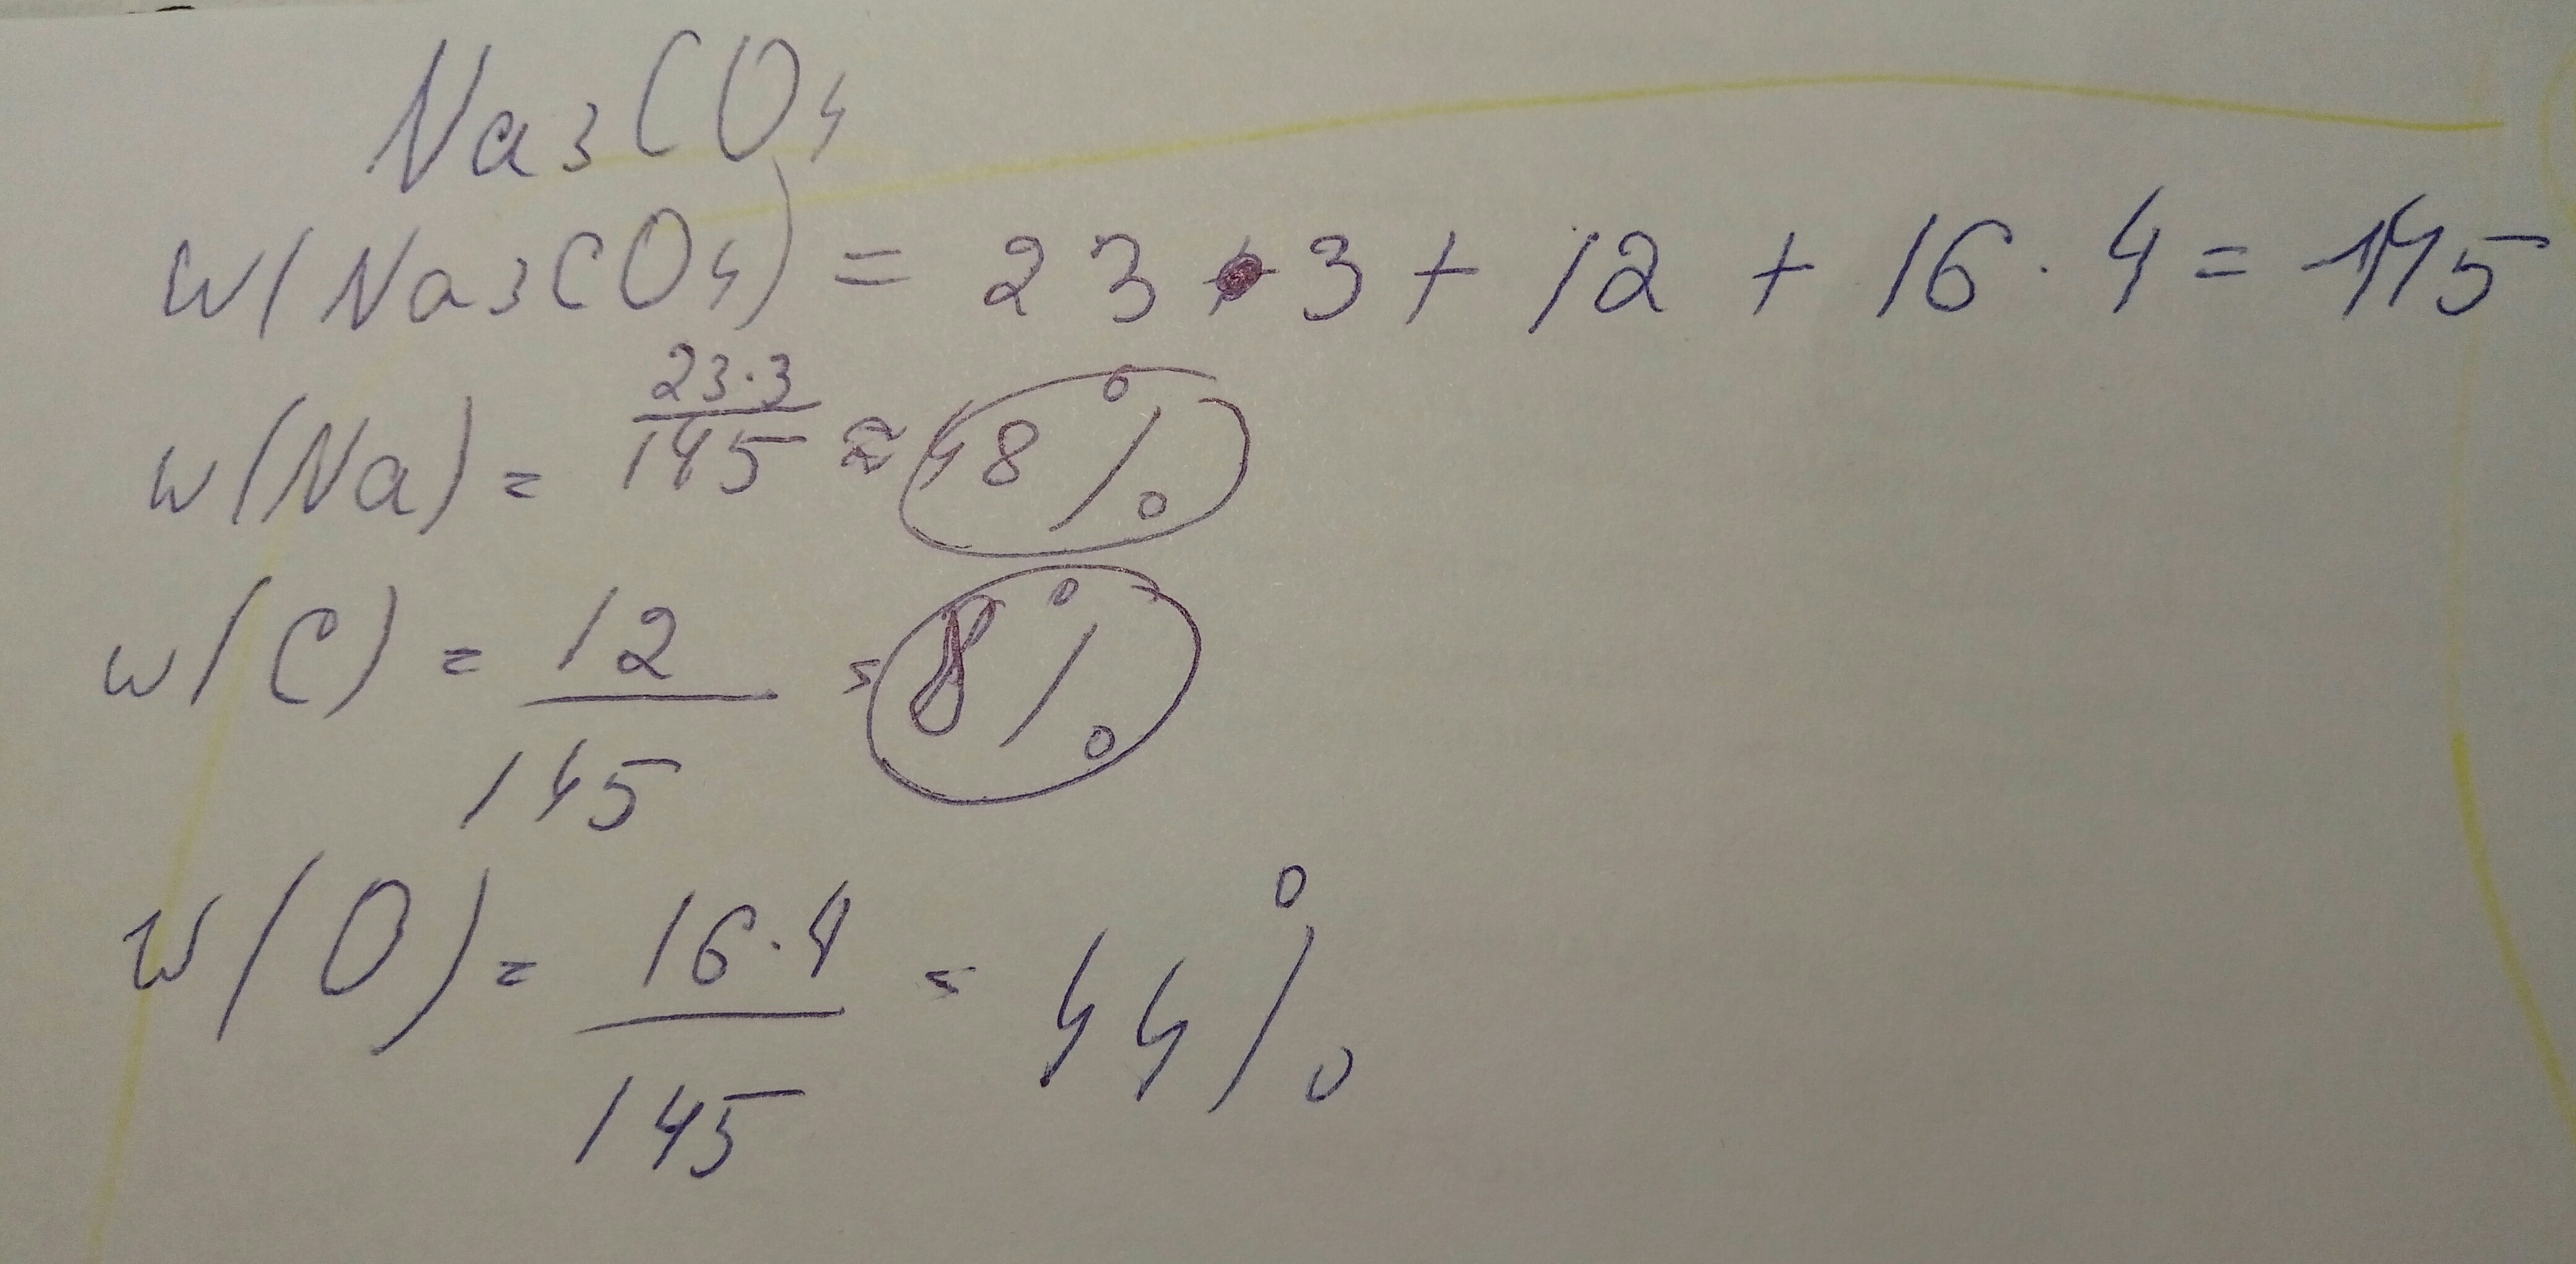 Na3CO4
w(Na3CO4) = 23 · 3 + 12 + 16 · 4 = 145
w(Na) = 23·3/145 ≈ 48%
w(C) = 12/145 = 8%
w(O) = 16·4/145 = 44%